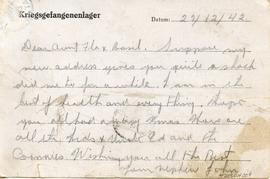 Kriegsgefangenenlager
Datum: 27/12/42
Dear Aunt Flo & Basil. Suppose my
new address gives you quite a shock
did me to for a while. I am in the
best of health and everything. Hope
you all had a jolly Xmas. How are
all the kids & Uncle Ed and the
Commies. Wishing you all the Best
Your Nephew John